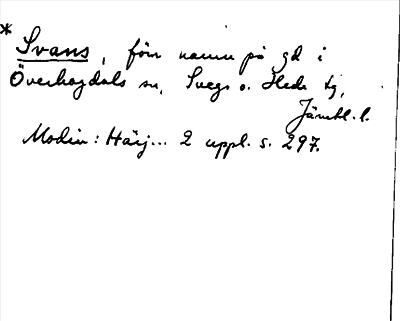 * Svans, förr namn på gd i
Överhogdals sn, Svegs o. Hede tg,
Jämtl. l.
Modin: Härj... 2 uppl. s. 297.